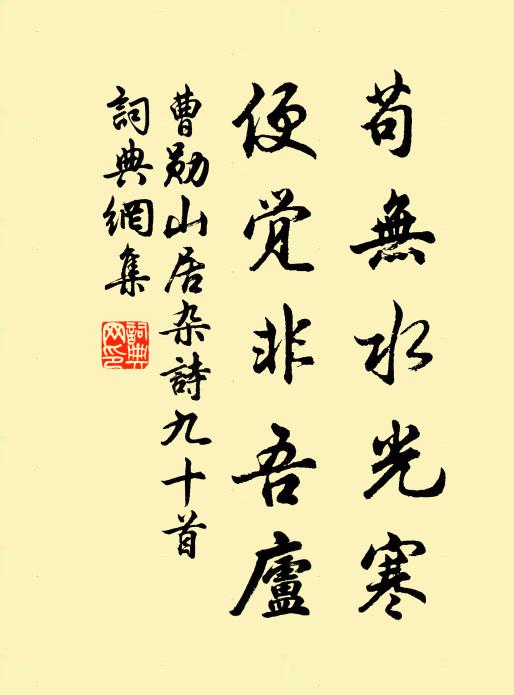 苟無水光寒
便覺非吾廬
曹勛山居杂詩九十首
詞典網集
詞典
网印